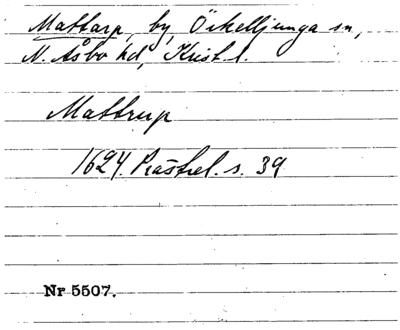 Mattarp, by, Örkelljunga sn,
N. Åsbo hd, Krist. l.
Mattrup
1624. Prästrel. s. 39
Nr 5507.